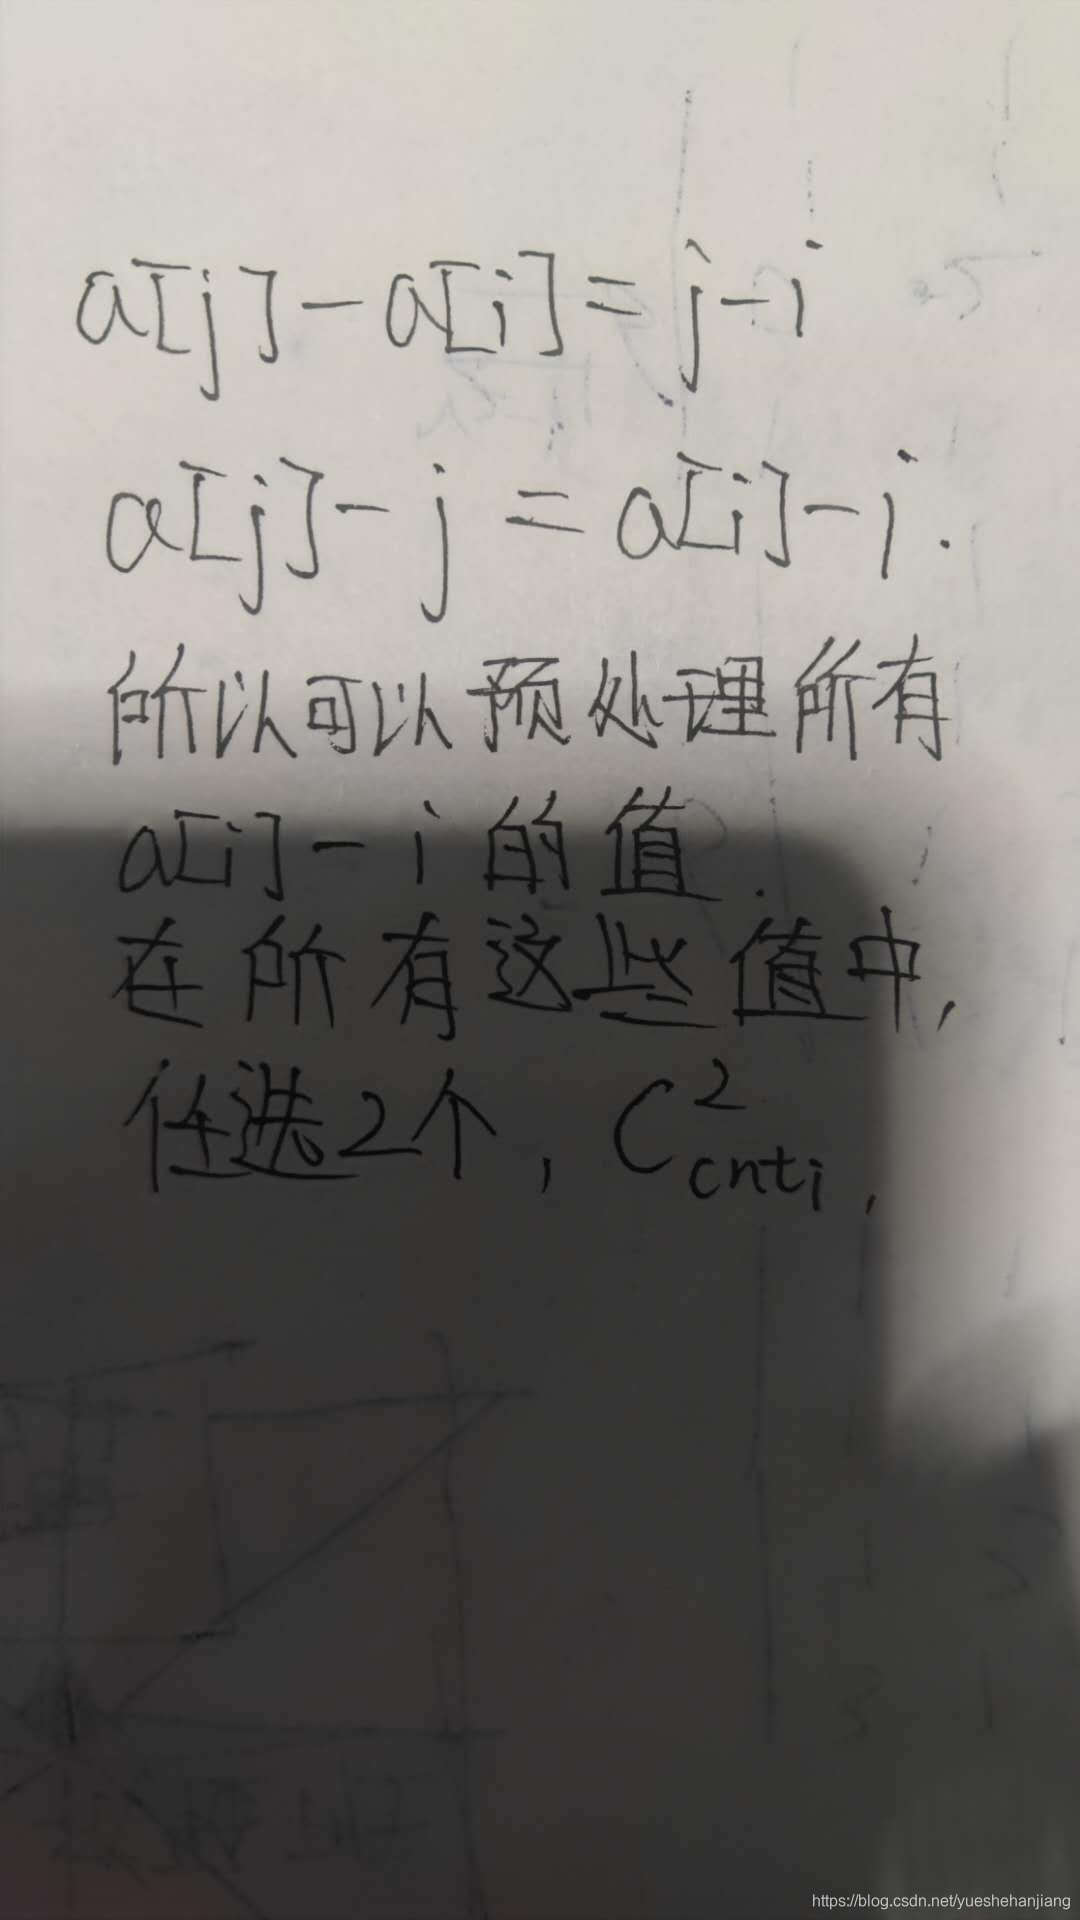 a[j]-a[i]=j-i
a[j]-j=a[i]-i.
所以可以预处理所有
a[i]-i的值.
在所有这些值中,
任选2个, C²cnti,
https://blog.csdn.net/yueshehanjiang